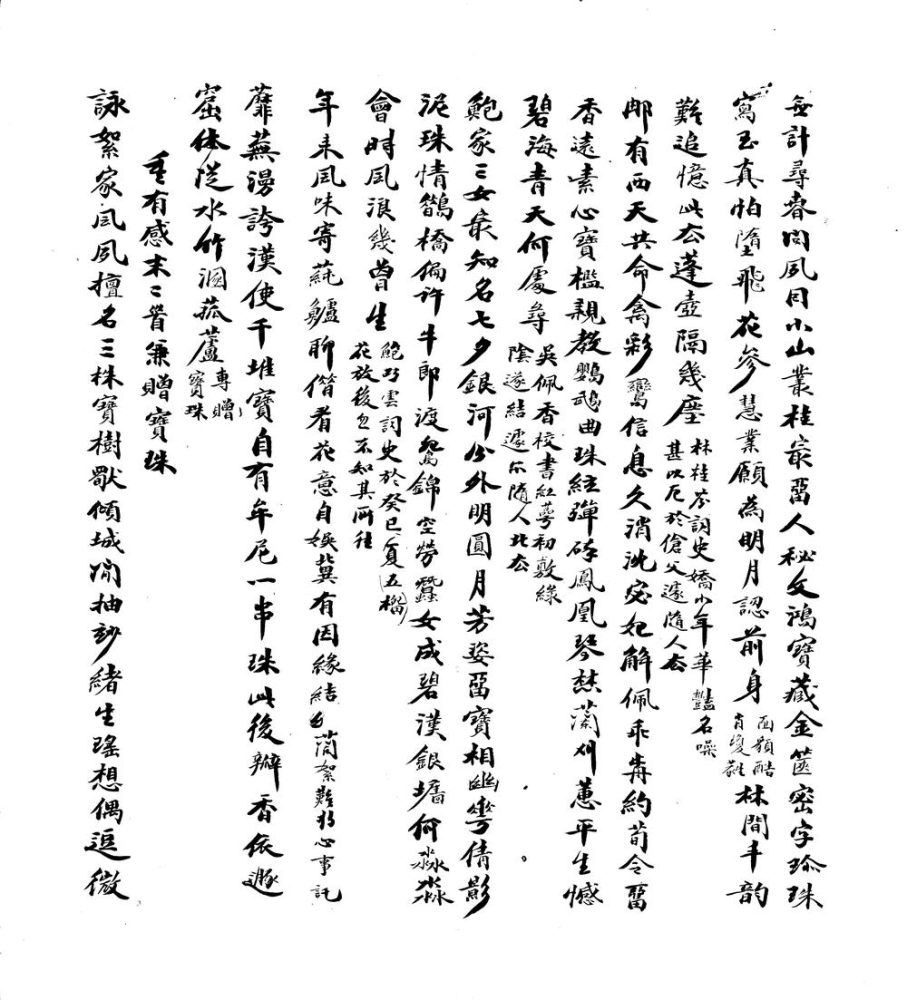 無計尋春問夙因小山叢桂最留人秘文鴻寶藏金篋密字珍珠
寫玉真怕墮飛花參慧業願為明月認前身
面額酷
肖爰雖
林間丰韵
難追憶此去蓬壺隔幾塵
林桂芬詞史嬌小年華豔名噪
甚以厄於傖父遽隨人去
邮有西天共命禽彩鸞信息久消沈宓妃解佩乖前約荀令留
香遠素心寶檻親教鸚鵡曲珠絃彈碎鳳凰琴愁蘭刈蕙平生憾
碧海青天何處尋
吳佩香校書紅萼初敷綠
陰遂結遽尔隨人北去
鮑家三女最知名七夕銀河分外明圓月芳姿留寶相幽花倩影
泥珠情鵲橋偏許牛郎渡鴛錦空勞蠶女成碧漢銀塘何淼淼
會時風浪幾曾生
鮑巧雲詞史於癸巳夏五榴
花放後忽不知其所往
年來風味寄蒓鱸聊借看花意自娛冀有因緣結蘭絮難將心事託
蘼蕪湯誇漢使千堆寶自有牟尼一串珠此後瓣香依遯
窟休從水竹溷菰蘆
專贈
寶珠
重有感末二首兼贈寶珠
詠絮家風夙擅名三株寶樹獸傾城閒抽妙緒生瑤想偶逗微